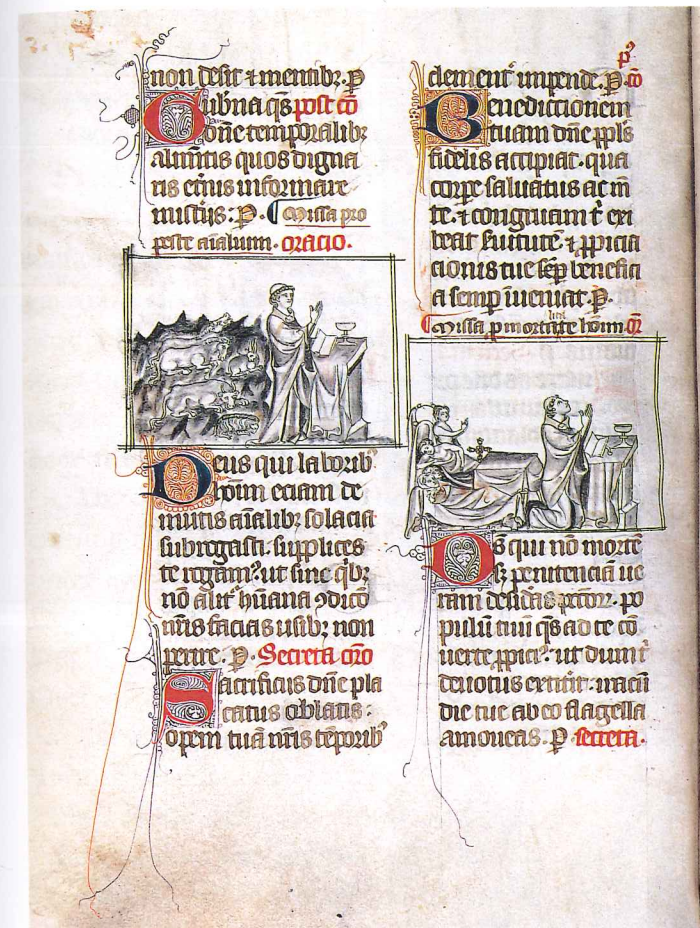 non desit ⁊ mentibꝫ. P
Gubna q̄s post cō
dn̄e temporalibꝫ
alim̄tis quos digna
ris et̄nis informare
mist̄iis : P. Missa pro
peste aīalium. oracio.
Deus qui laboribꝰ
hoīm eciam de
mutis aīalibꝫ solacia
subrogasti. supplices
te rogamꝰ. ut sine q̄bꝫ
nō alit͛ hūana ꝯdicō
nr̄is facias usibꝫ non
perire. P. Secreta oīo
Sacrificiis dn̄e pla
catus oblatis :
opem tuā nr̄is tēporibꝰ
clement͛ impende. P. cō
pꝰ
Benediccionem
tuam dn̄e ppl̄s
fidelis accipiat. qua
corpe saluatus ac m̄
te. ⁊ congruam t͛ exi
beat ſuitutē ⁊ ꝓpicia
cionis tue sēp benefici
a semp īueniat. P.
Missa ꝓ mortalitate hoīm. or̄
Ds̄ qui nō mortē
sꝫ penitenciā ue
ram desidas pctōrꝝ. po
pulū tuū q̄s ad te cō
uertē ꝓpiciꝰ. ut dum t̄
deuotus extitit. iracū
die tue ab eo flagella
amoueas. P secreta.